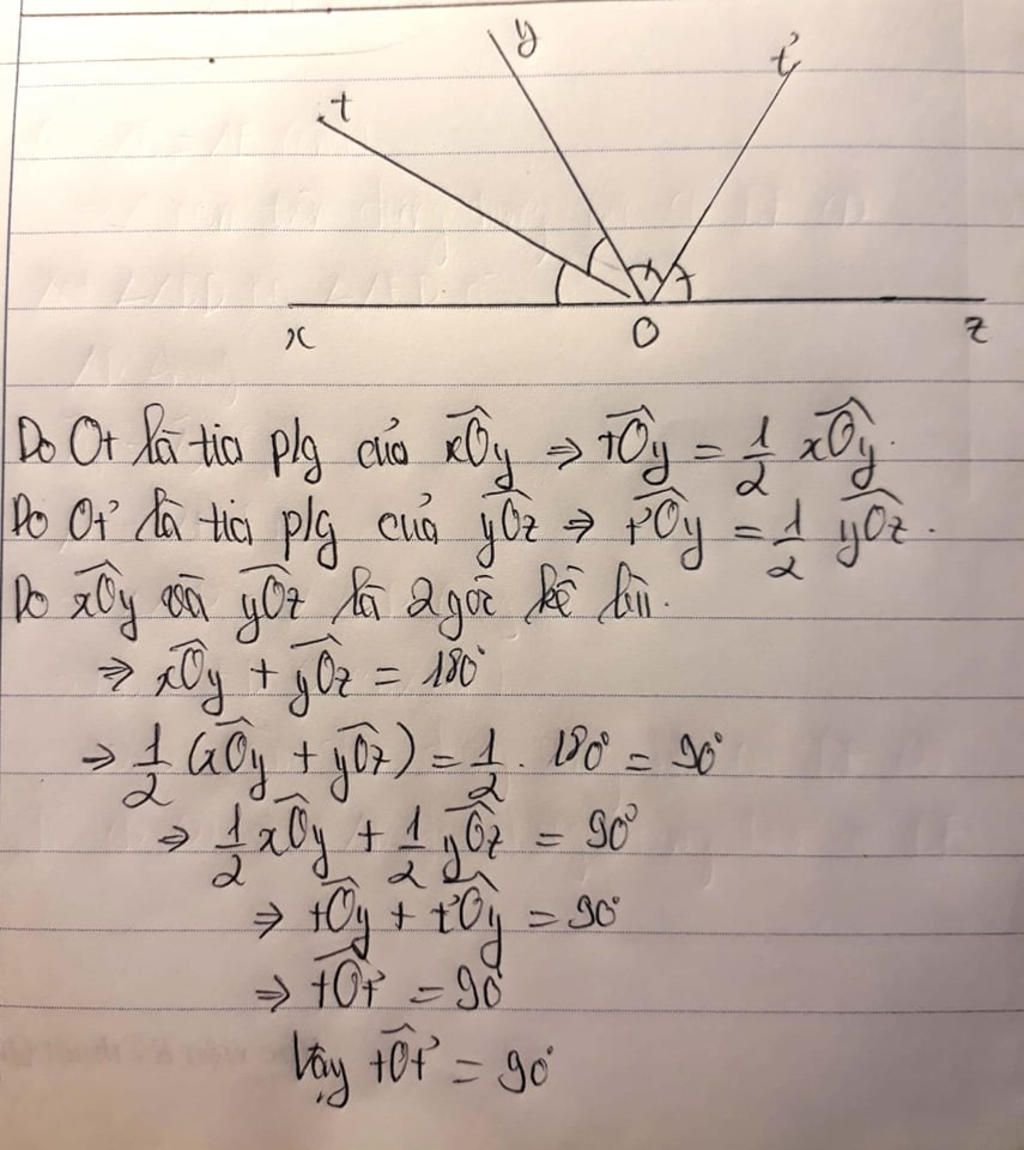 y
t'
t
x O z
Do Ot là tia p/g của xÔy ⇒ tÔy = 1/2 xÔy.
Do Ot' là tia p/g của yÔz ⇒ t'Ôy = 1/2 yÔz.
Do xÔy và yÔz là 2 góc kề bù.
⇒ xÔy + yÔz = 180°
⇒ 1/2 (xÔy + yÔz) = 1/2 . 180° = 90°
⇒ 1/2 xÔy + 1/2 yÔz = 90°
⇒ tÔy + t'Ôy = 90°
⇒ tÔt' = 90°
Vậy tÔt' = 90°